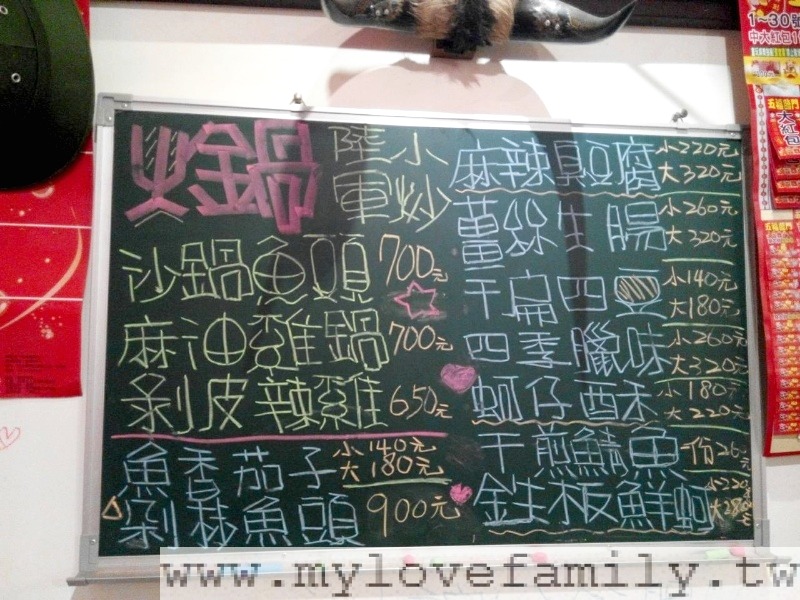 火鍋
陸軍小炒
沙鍋魚頭 700元
麻油雞鍋 700元
剝皮辣雞 650元
魚香茄子 小140元 大180元
剁椒魚頭 900元
麻辣臭豆腐 小220元 大320元
薑絲生腸 小260元 大320元
干扁四豆 小140元 大180元
四季臘味 小260元 大320元
蚵仔酉禾 小180元 大220元
干煎鯖魚 一份26元
鉄板鮮蚵 小220元 大280元
1~30號
中大紅包
大紅包
www.mylovefamily.tw